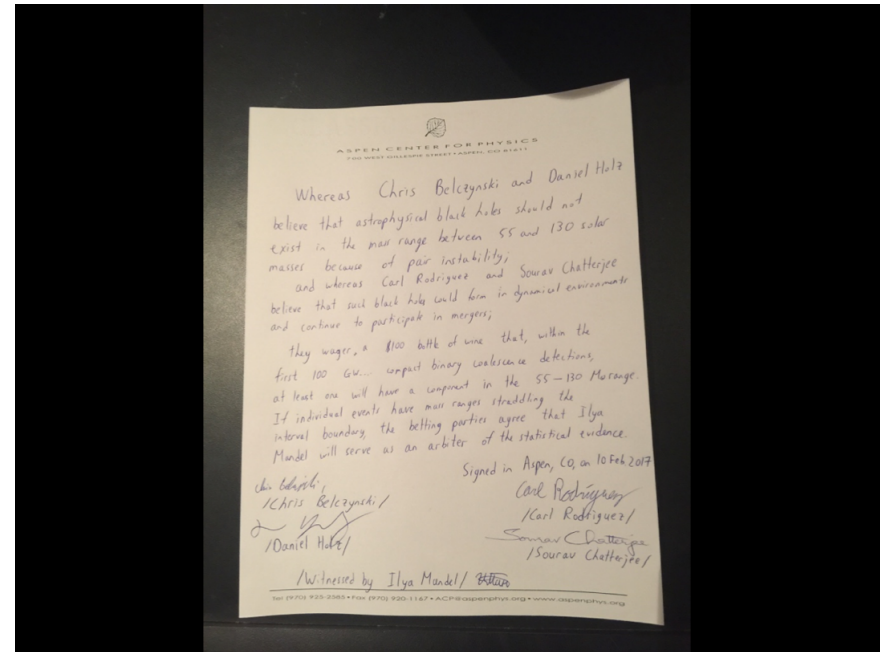 ASPEN CENTER FOR PHYSICS
700 WEST GILLESPIE STREET • ASPEN, CO 81611
Whereas Chris Belczynski and Daniel Holz
believe that astrophysical black holes should not
exist in the mass range between 55 and 130 solar
masses because of pair instability;
and whereas Carl Rodriguez and Sourav Chatterjee
believe that such black holes could form in dynamical environments
and continue to participate in mergers;
they wager a $100 bottle of wine that, within the
first 100 GW compact binary coalescence detections,
at least one will have a component in the 55-130 M☉ range.
If individual events have mass ranges straddling the
interval boundary, the betting parties agree that Ilya
Mandel will serve as an arbiter of the statistical evidence.
Signed in Aspen, CO, on 10 Feb 2017
/Chris Belczynski/
Carl Rodriguez
/Carl Rodriguez/
/Daniel Holz/
Sourav Chatterjee
/Sourav Chatterjee/
/Witnessed by Ilya Mandel/
Tel (970) 925-2585 • Fax (970) 920-1167 • ACP@aspenphys.org • www.aspenphys.org